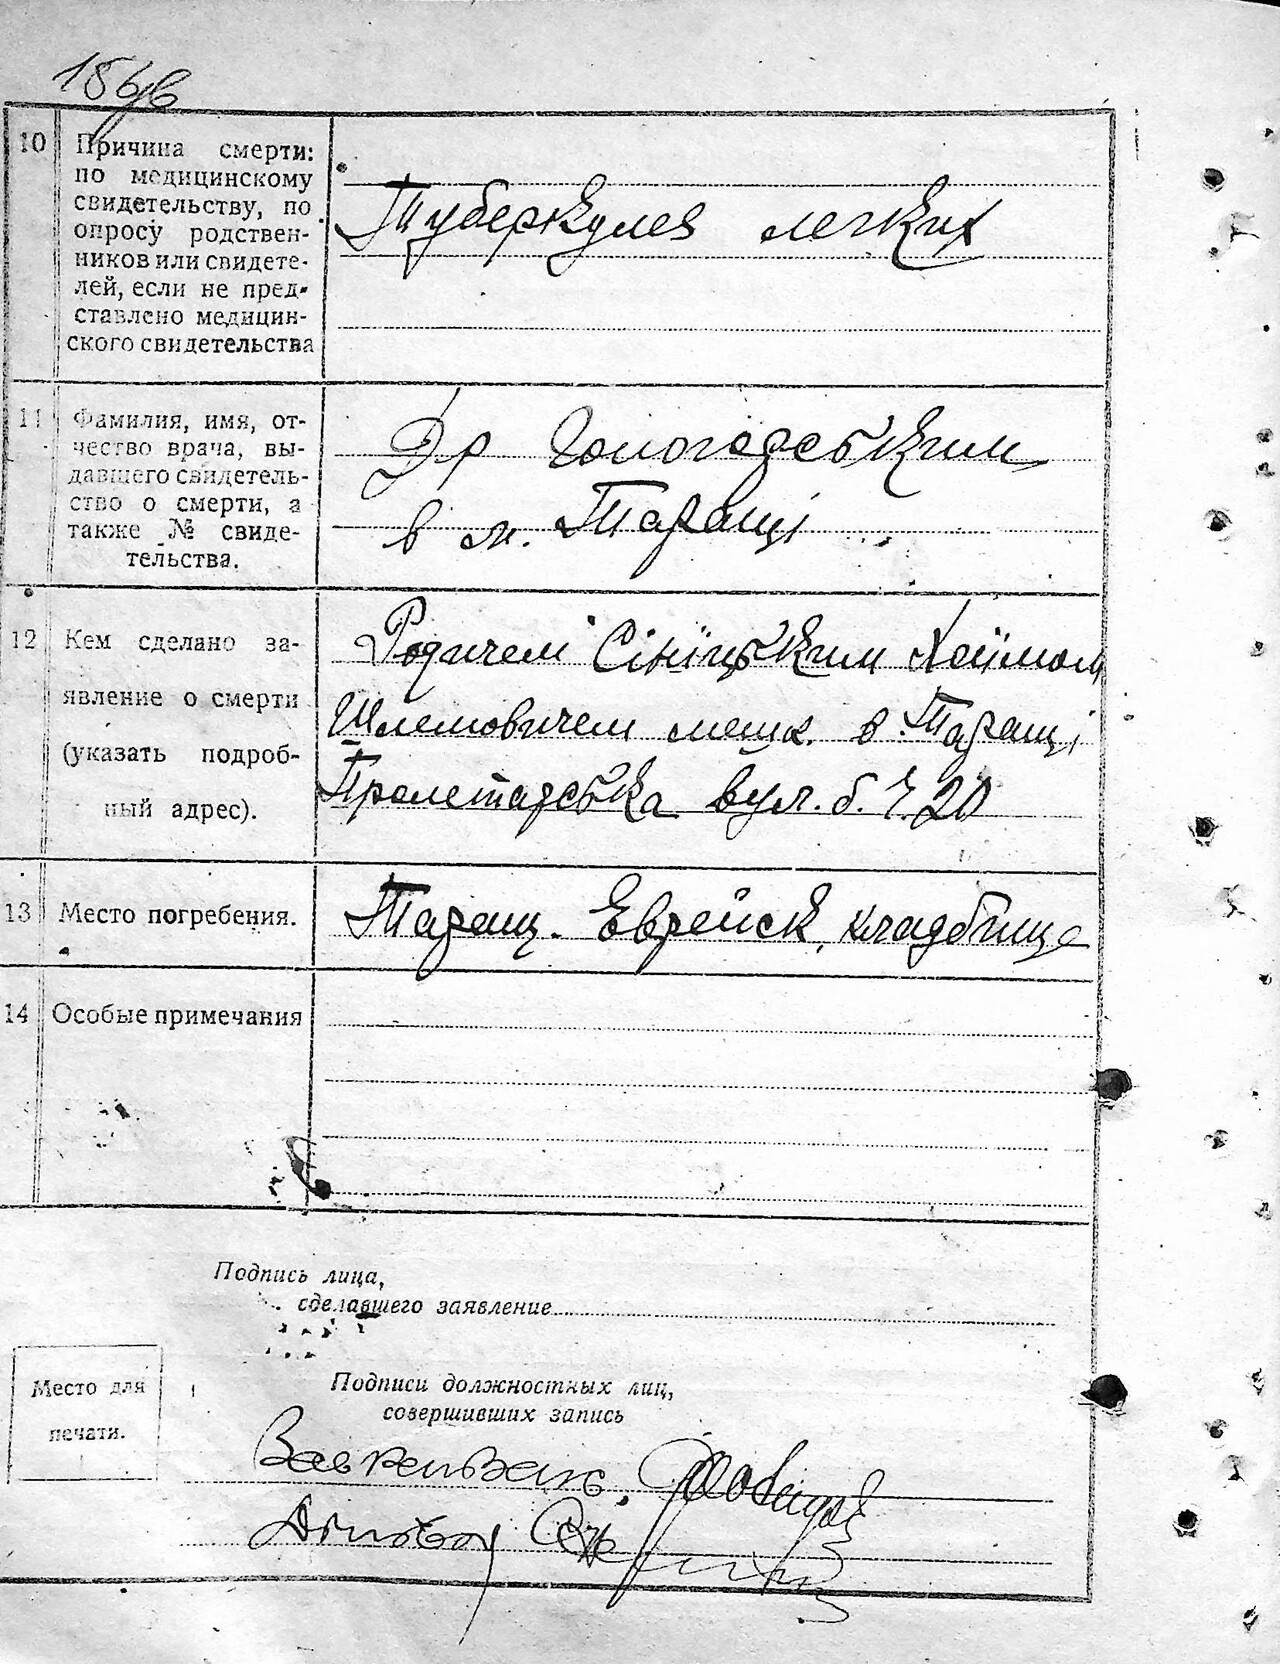 10 Причина смерти:
по медицинскому
свидетельству, по
опросу родствен-
ников или свидете-
лей, если не пред-
ставлено медицин-
ского свидетельства
Туберкулез легких
11 Фамилия, имя, от-
чество врача, вы-
давшего свидетель-
ство о смерти, а
также № свиде-
тельства.
Др Гологорським
в м. Таращі
12 Кем сделано за-
явление о смерти
(указать подроб-
ный адрес).
Родичем Сініцьким Хаїмом
Шлемовичем мешк. в. Таращі
Пролетарська вул. б. ч. 20
13 Место погребения.
Таращ. Еврейск. кладбище
14 Особые примечания
Подпись лица,
сделавшего заявление
Место для
печати.
Подписи должностных лиц,
совершивших запись
Діловод